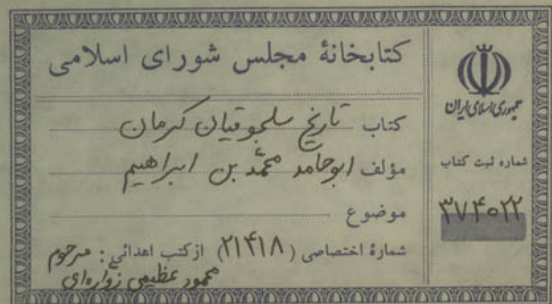 کتابخانهٔ مجلس شورای اسلامی
کتاب تاریخ سلجوقیان کرمان
مؤلف ابوحامد محمّد بن ابراهیم
موضوع
شمارهٔ اختصاصی (۲۱۴۱۸) از کتب اهدائی: مرحوم
محمود عظیمی زواره‌ای
جمهوری اسلامی ایران
شماره ثبت کتاب
۳۷۴۰۲۲